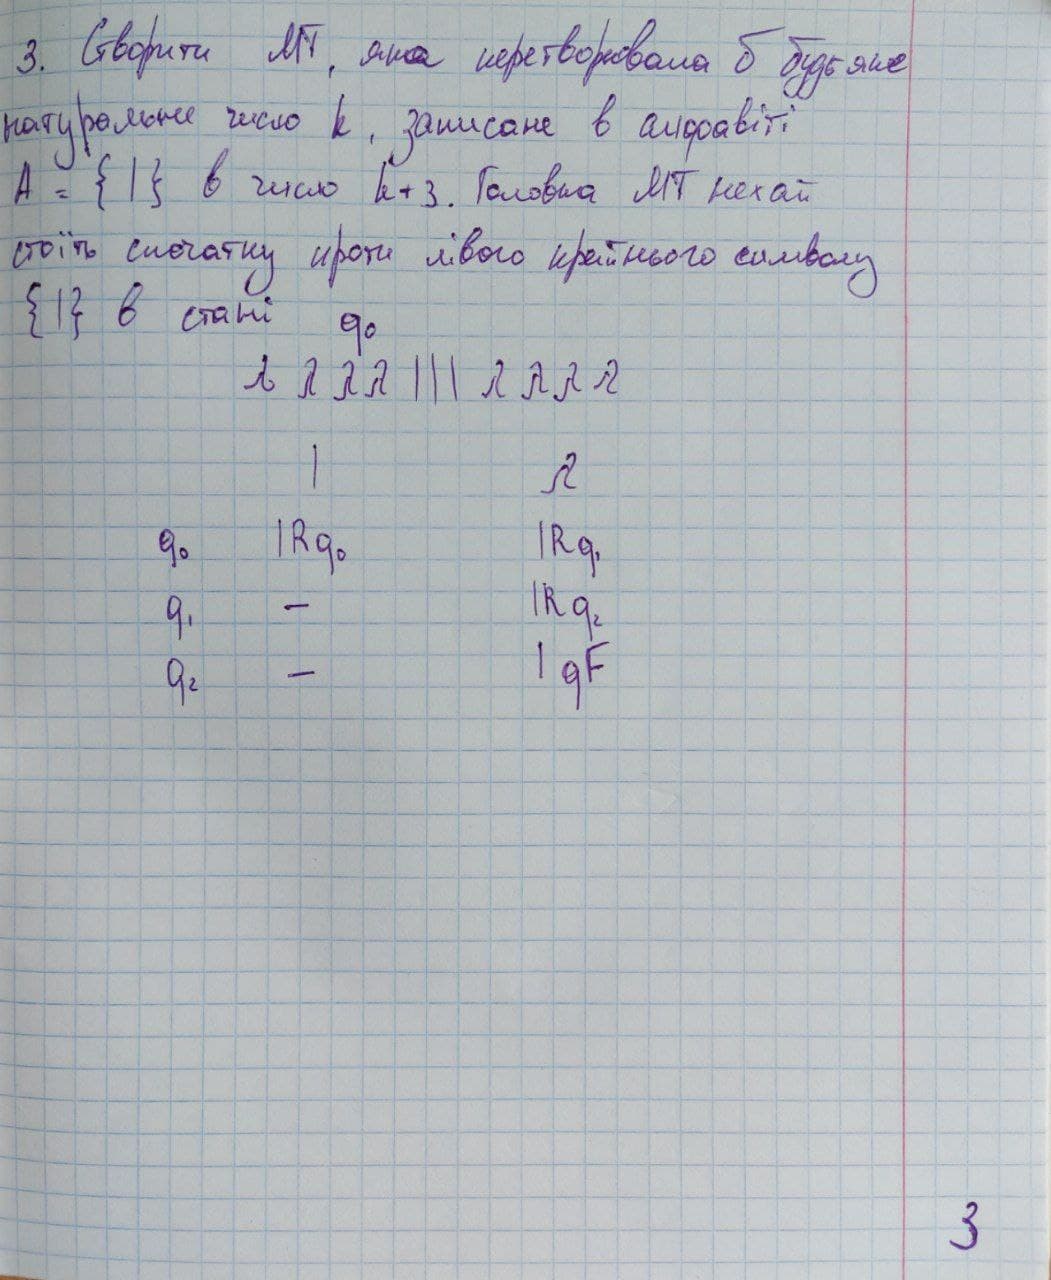 3. Створити МТ, яка перетворювала б будь яке
натуральне число k, записане в алфавіті
A = {|} в число k+3. Головка МТ нехай
стоїть спочатку проти лівого крайнього символу
{|} в стані q₀
λ λ λ λ ||| λ λ λ λ
| λ
q₀ |Rq₀ |Rq₁
q₁ — |Rq₂
q₂ — | qF
3